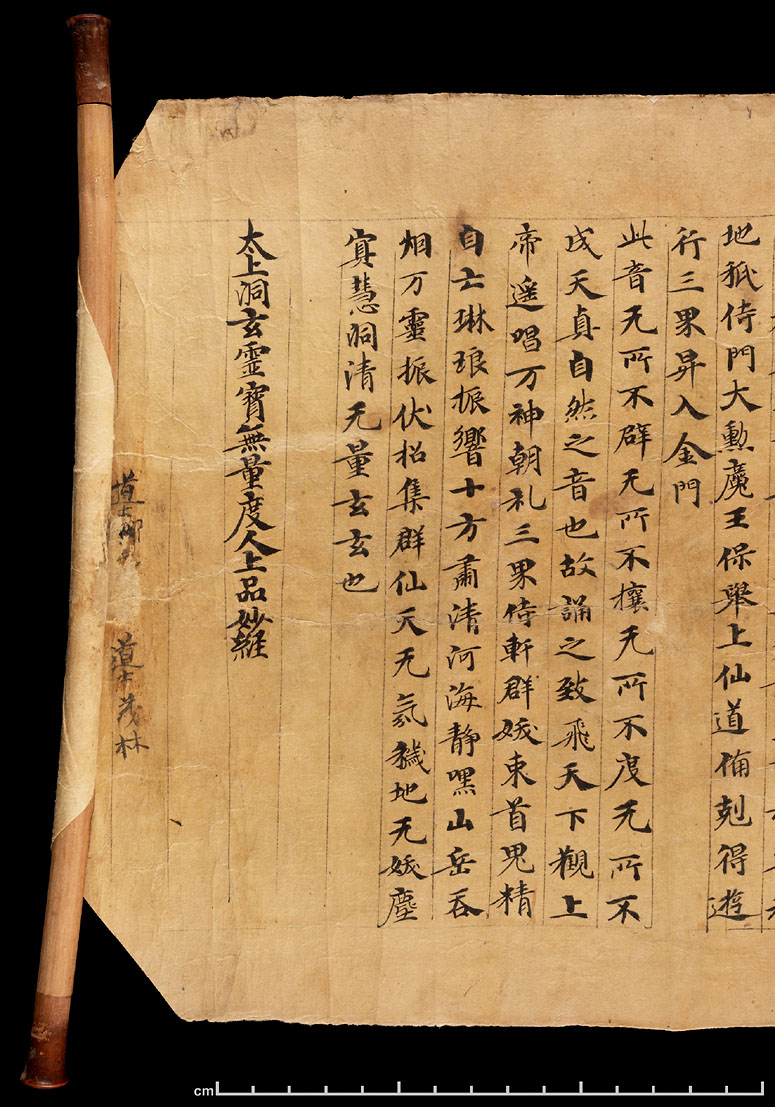 地祇侍門大勲魔王保舉上仙道俻剋得遊
行三界昇入金門
此音无所不辟无所不攘无所不度无所不
成天真自然之音也故誦之致飛天下觀上
帝遥唱万神朝礼三界侍軒群妖束首鬼精
自亡琳琅振響十方肅清河海静嘿山岳吞
烟万靈振伏招集群仙天无氛穢地无妖塵
冥慧洞清无量玄玄也
太上洞玄靈寶無量度人上品妙經
道士 道士茂林
cm